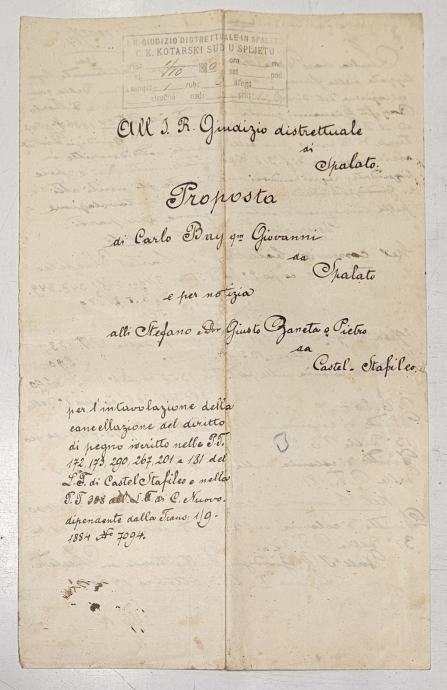 I. R. GIUDIZIO DISTRETTUALE IN SPALATO
C. K. KOTARSKI SUD U SPLJETU
All I. R. Giudizio distrettuale
di
Spalato.
Proposta
di Carlo Bay qm Giovanni
da
Spalato
e per notizia
alli Stefano e Giusto Zaneta q Pietro
da
Castel-Stafileo.
per l'intavolazione della
cancellazione del diritto
di pegno iscritto nelle P.T.
172, 173, 290, 267, 201 e 131 del
L.F. di Castel Stafileo e nella
P.T. 388 L.F. di C. Nuovo.
dipendente dalla Trans. 1/9.
1884 No 7094.